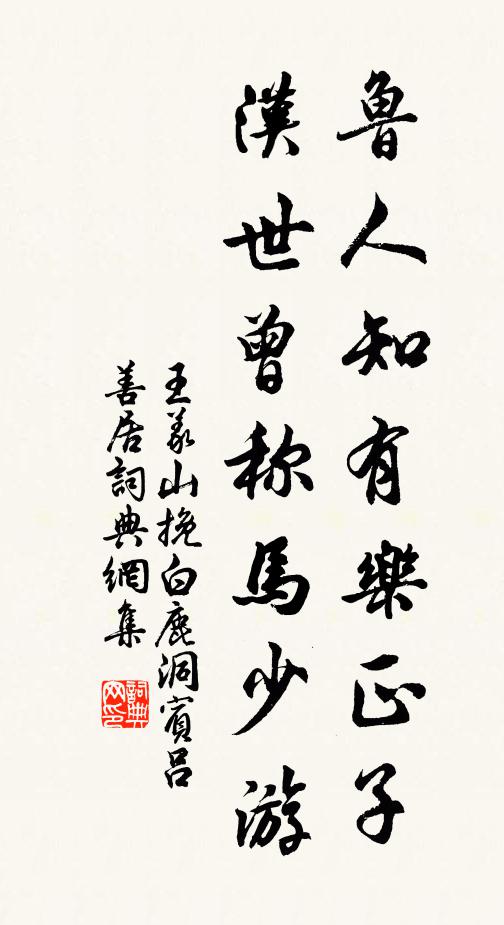 魯人知有樂正子
漢世曾称馬少游
王義山挽白鹿洞賓吕
善居詞典網集
詞典
网印